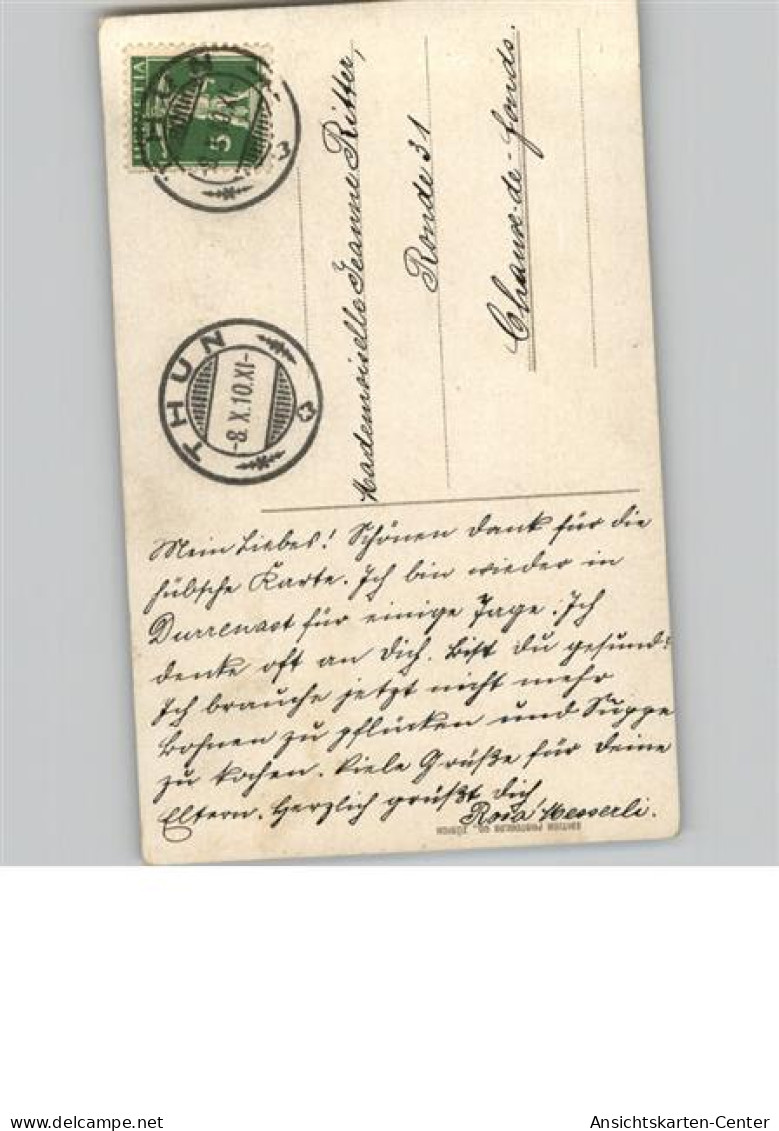 HELVETIA
5
THUN
THUN
-8.X.10.XI-
Mademoiselle Jeanne Ritter,
Ronde 31
Chaux-de-fonds.
Mein Liebes! Schönen Dank für die
hübsche Karte. Ich bin wieder in
Durrenast für einige Tage. Ich
denke oft an Dich. Bist du gesund?
Ich brauche jetzt nicht mehr
Bohnen zu pflücken und Suppe
zu kochen. Viele Grüße für deine
Eltern. Herzlich grüßt Dich
Rosa Messerli.
EDITION PHOTOGLOB CO. ZÜRICH
Ansichtskarten-Center